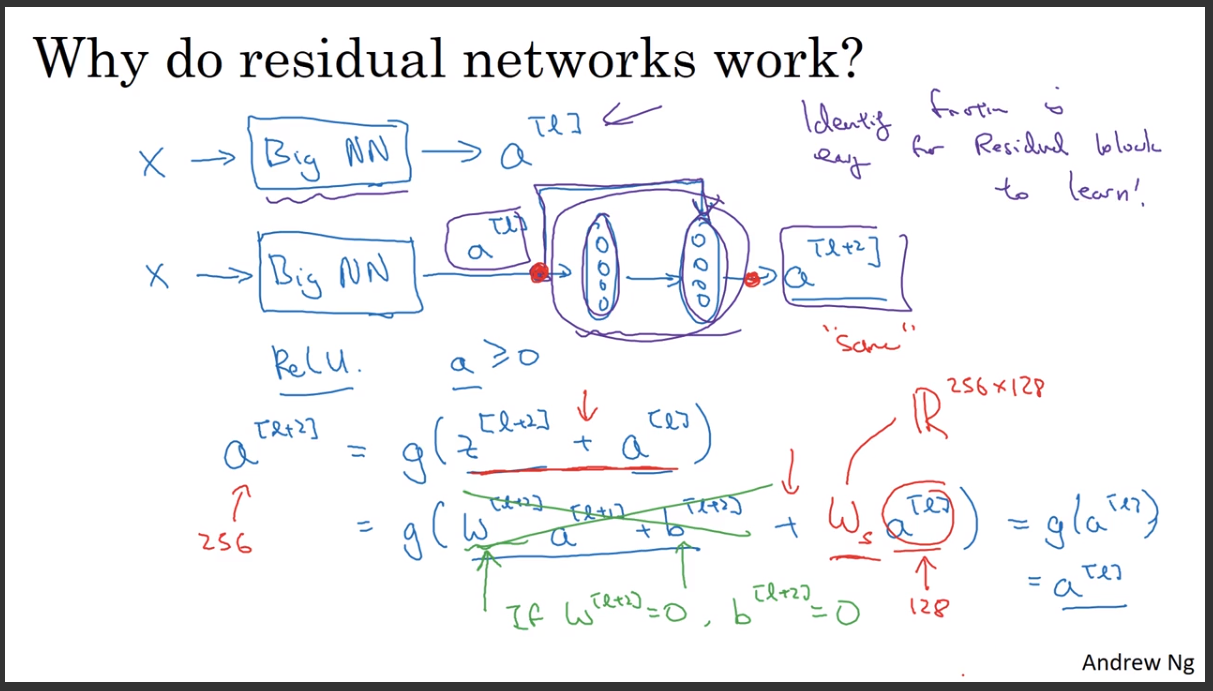 Why do residual networks work?
X → Big NN → a^[l]
Identity function is
easy for Residual block
to learn!
X → Big NN a^[l] → a^[l+2]
"same"
ReLU. a ≥ 0
ℝ^256×128
a^[l+2] = g(z^[l+2] + a^[l])
256
= g(W^[l+2] a^[l+1] + b^[l+2] + W_s a^[l]) = g(a^[l])
= a^[l]
128
If W^[l+2] = 0, b^[l+2] = 0
Andrew Ng